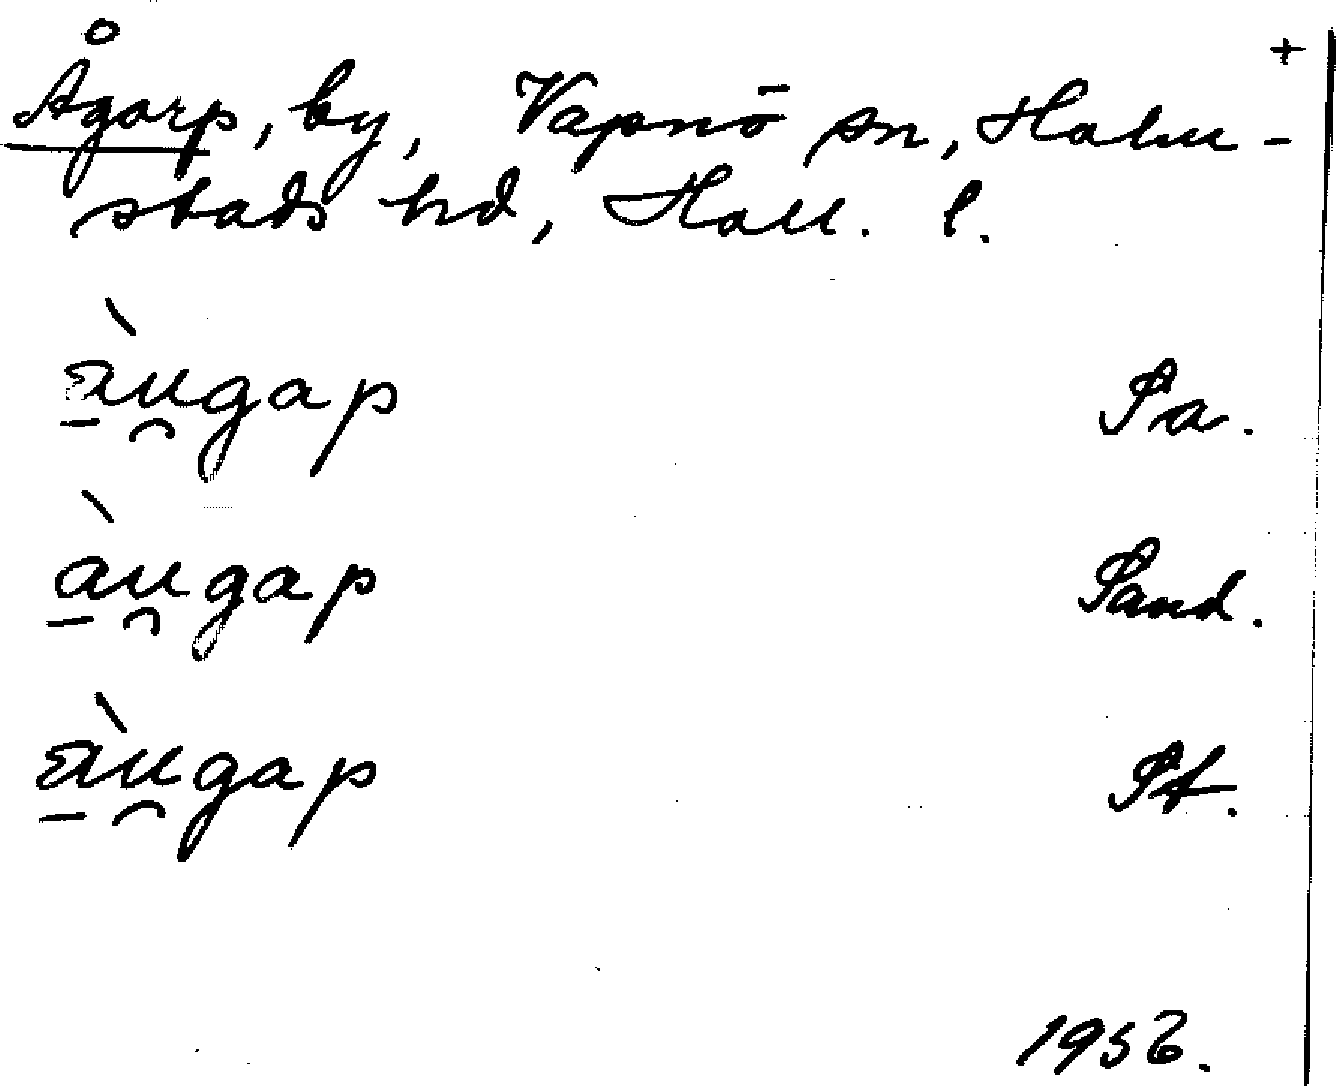 Ågarp, by, Vapnö sn, Halm- +
stads hd, Hall. l.
àu̯gap Pa.
àu̯gap Sand.
àu̯gap
1956.